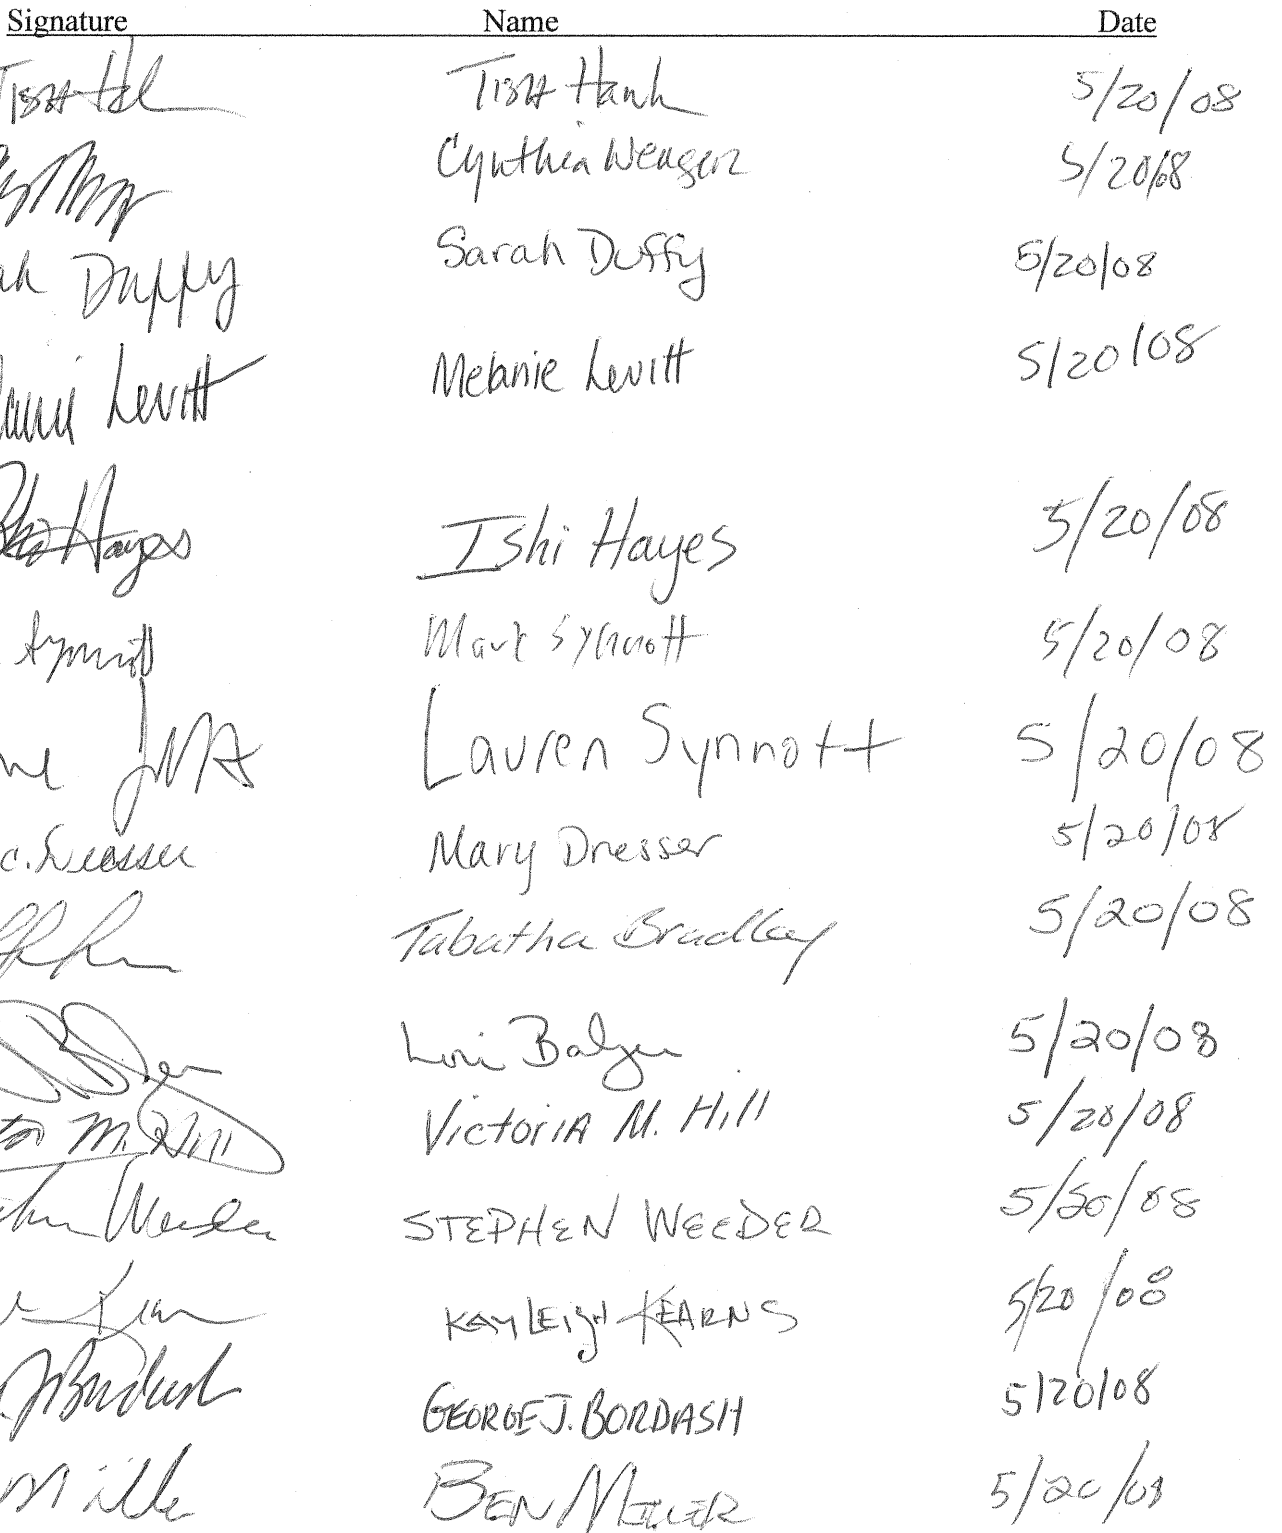 Signature Name Date
Tish Hank 5/20/08
Cynthia Wenger 5/20/08
Duffy Sarah Duffy 5/20/08
Levitt Melanie Levitt 5/20/08
Hayes Ishi Hayes 5/20/08
Synnott Mark Synnott 5/20/08
Lauren Synnott 5/20/08
C. Dresser Mary Dresser 5/20/08
Tabatha Bradley 5/20/08
Lori 5/20/08
M. Hill Victoria M. Hill 5/20/08
Weeder STEPHEN WEEDER 5/20/08
KAYLEIGH KEARNS 5/20/08
J Bordash GEORGE J. BORDASH 5/20/08
Miller BEN MILLER 5/20/08